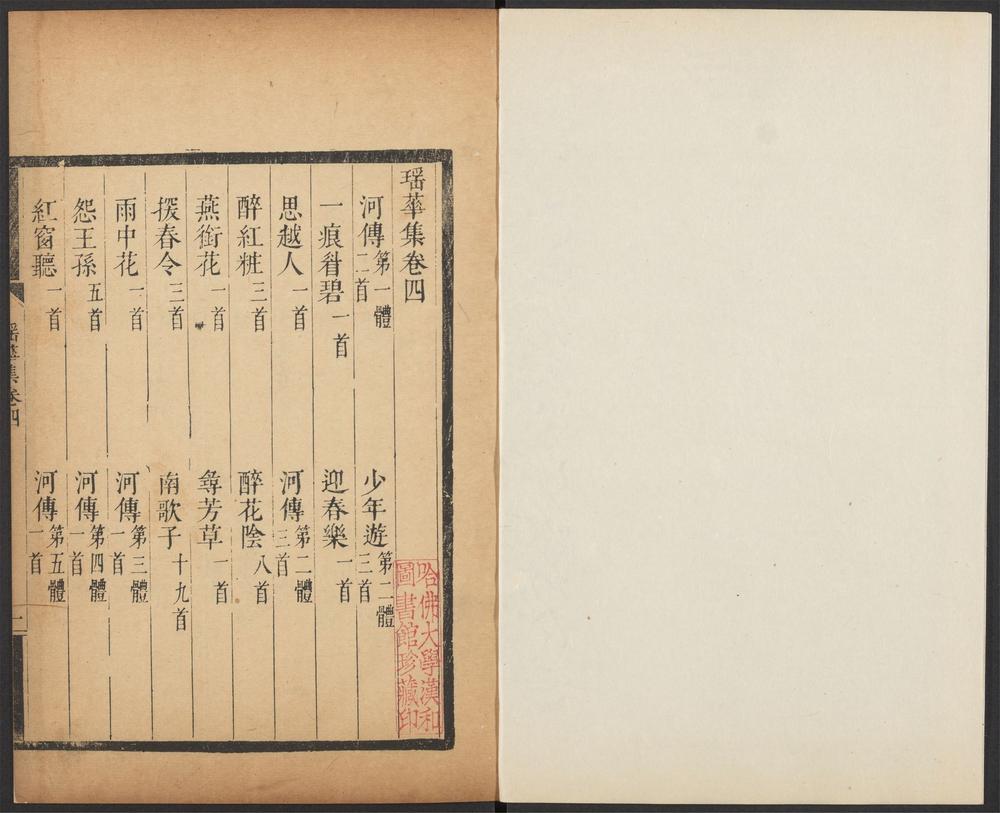 瑶華集卷四
河傳第一體二首　少年遊第二體三首
一痕眉碧一首　迎春樂一首
思越人一首　河傳第二體三首
醉紅粧三首　醉花陰八首
燕銜花一首　尋芳草一首
撥春令三首　南歌子十九首
雨中花一首　河傳第三體一首
怨王孫五首　河傳第四體一首
紅窗聽一首　河傳第五體一首
瑶華集卷四
一
哈佛大學漢和
圖書館珍藏印